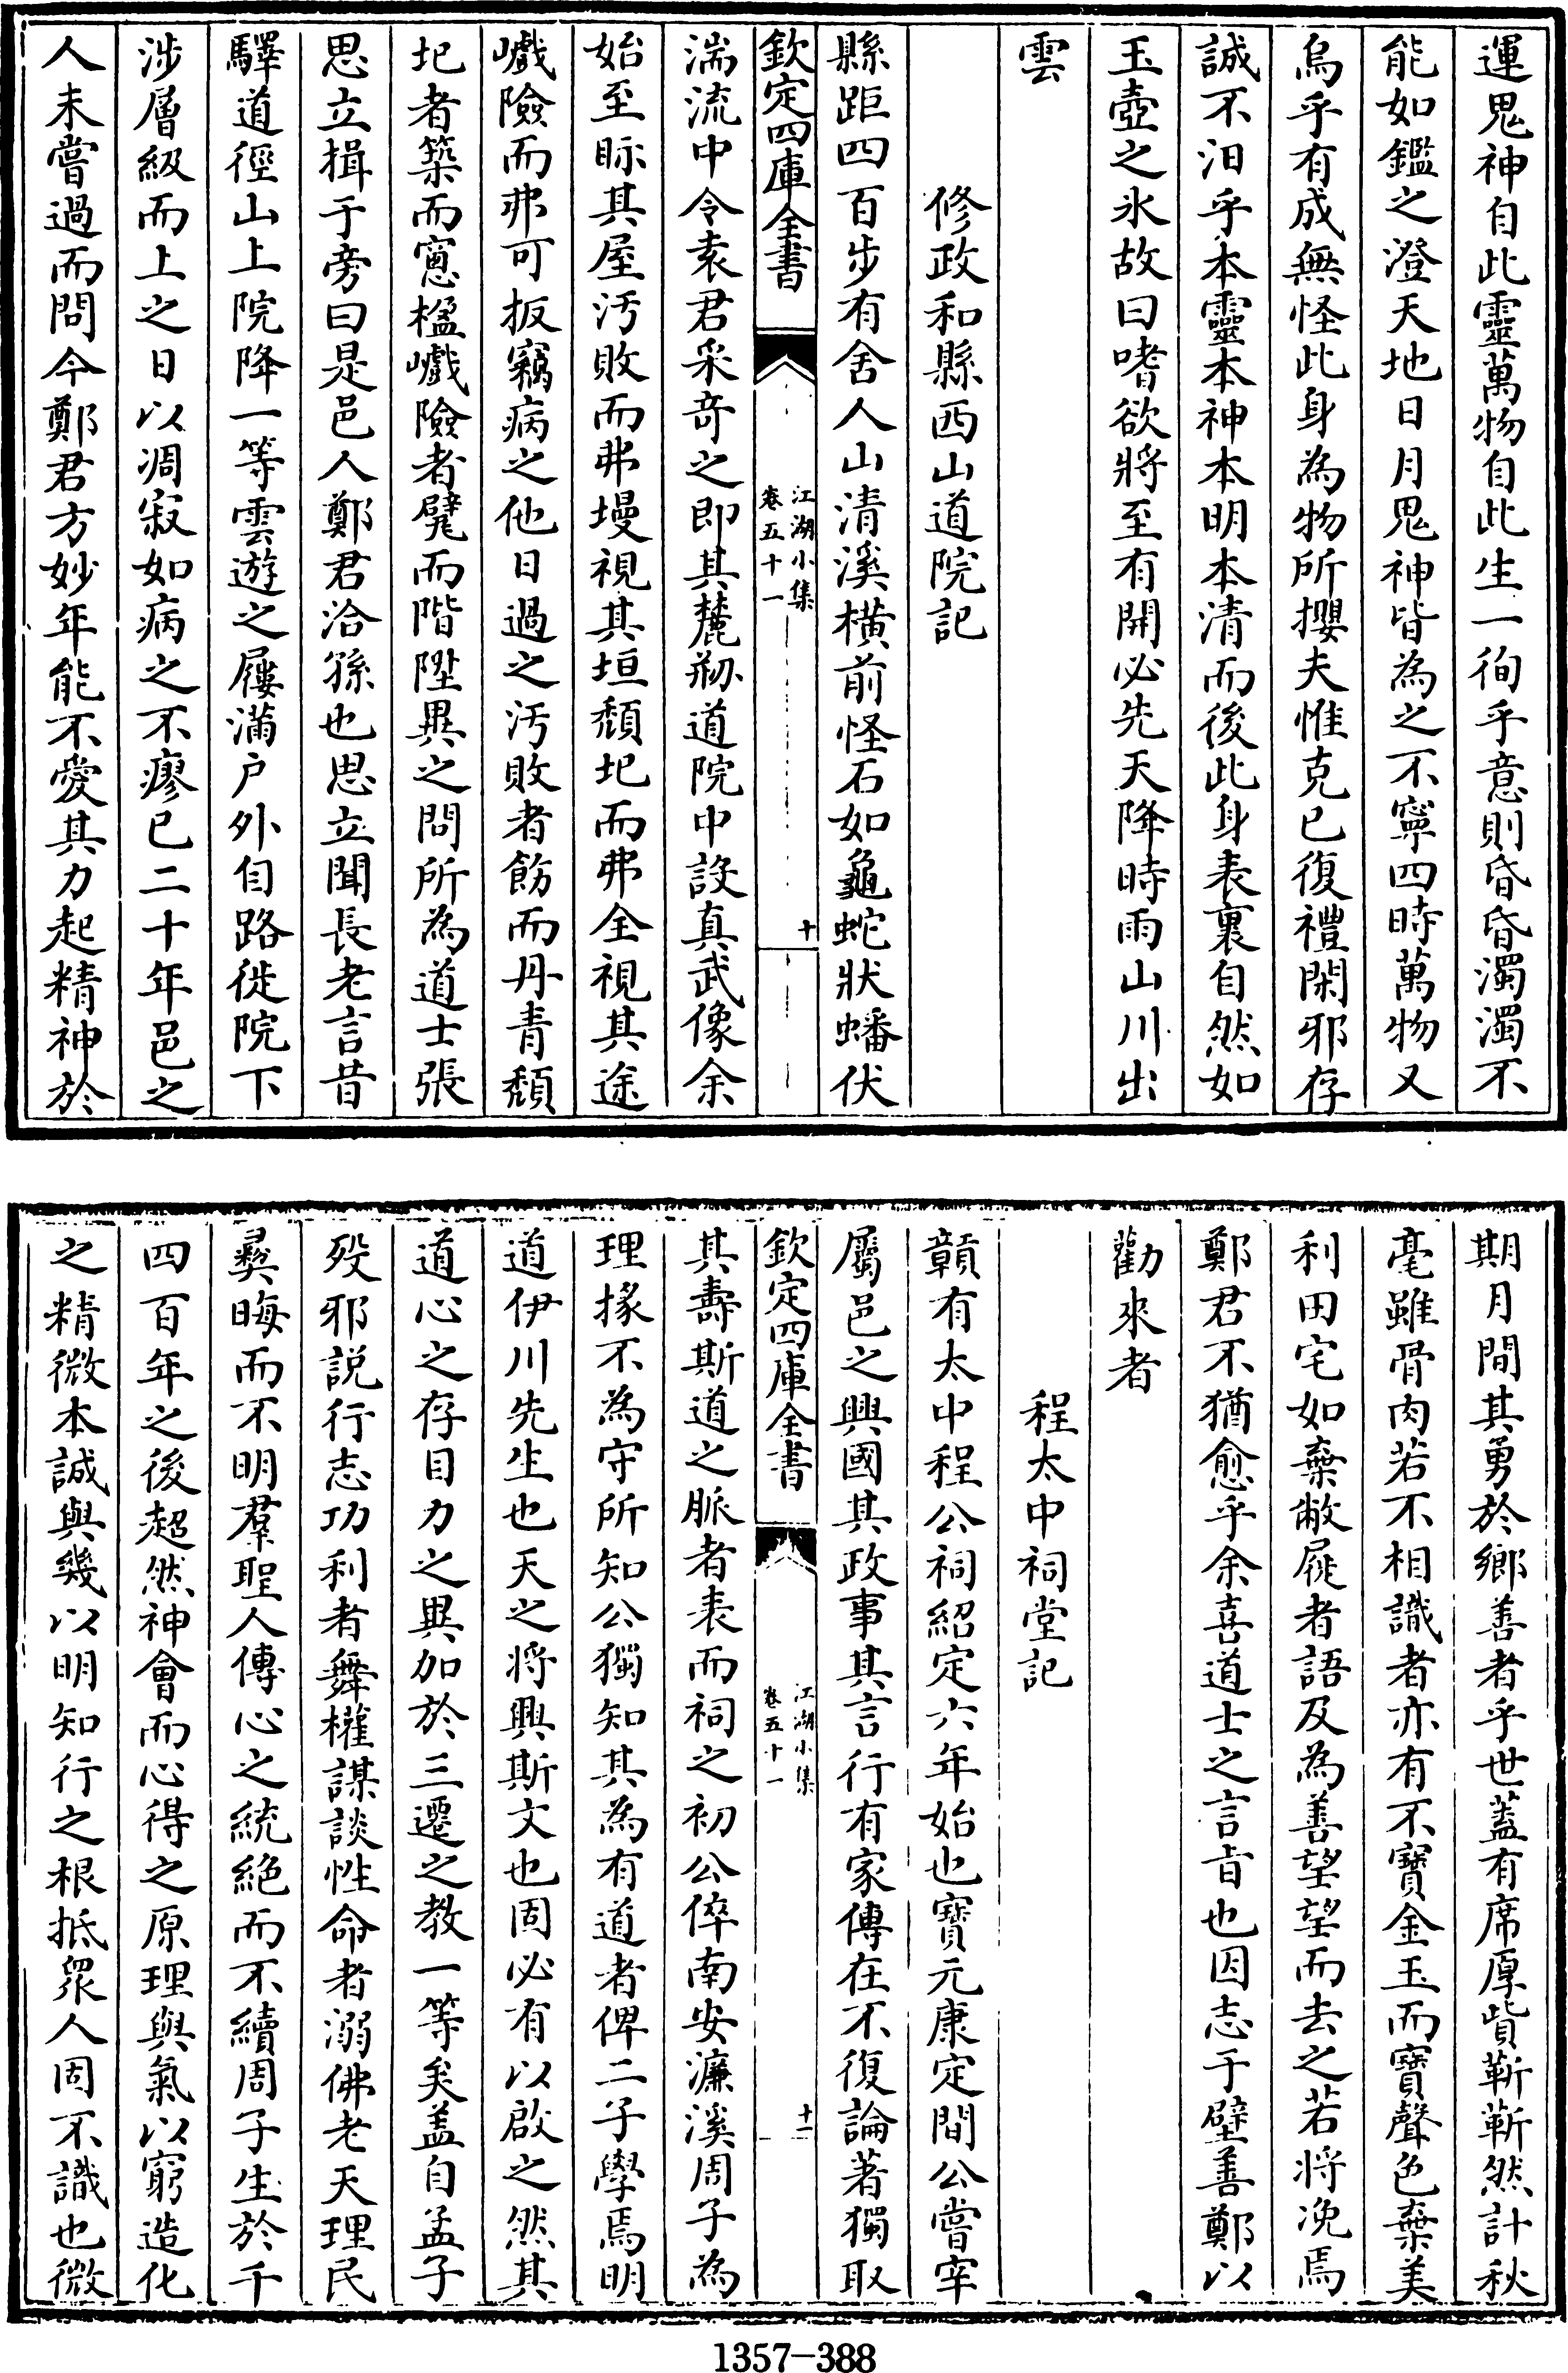 運鬼神自此靈萬物自此生一徇乎意則昏昏濁濁不
能如鑑之澄天地日月鬼神皆為之不寧四時萬物又
烏乎有成無怪此身為物所攖夫惟克已復禮閑邪存
誠不汨乎本靈本神本明本清而後此身表裏自然如
玉壺之氷故曰嗜欲將至有開必先天降時雨山川出
雲
修政和縣西山道院記
縣距四百步有舍人山清溪横前怪石如龜蛇狀蟠伏
欽定四庫全書
江湖小集
卷五十一
十
湍流中令袁君采竒之即其麓剏道院中設真武像余
始至眎其屋汚敗而弗墁視其垣頽圮而弗全視其途
巇險而弗可扳竊病之他日過之汚敗者飭而丹青頽
圮者築而窻楹巇險者甓而階陞異之問所為道士張
思立揖于旁曰是邑人鄭君洽孫也思立聞長老言昔
驛道徑山上院降一等雲遊之屨滿户外自路徙院下
涉層級而上之日以凋寂如病之不瘳已二十年邑之
人未嘗過而問今鄭君方妙年能不愛其力起精神於
期月間其勇於鄉善者乎世蓋有席厚貲靳靳然計秋
毫雖骨肉若不相識者亦有不寶金玉而寶聲色棄美
利田宅如棄敝屣者語及為善望望而去之若將浼焉
鄭君不猶愈乎余喜道士之言旨也因志于壁善鄭以
勸來者
程太中祠堂記
贛有太中程公祠紹定六年始也寶元康定間公嘗宰
屬邑之興國其政事其言行有家傳在不復論著獨取
欽定四庫全書
江湖小集
卷五十一
十一
其壽斯道之脈者表而祠之初公倅南安濂溪周子為
理掾不為守所知公獨知其為有道者俾二子學焉明
道伊川先生也天之將興斯文也固必有以啟之然其
道心之存目力之異加於三遷之教一等矣盖自孟子
殁邪説行志功利者舞權謀談性命者溺佛老天理民
彜晦而不明羣聖人傳心之統絶而不續周子生於千
四百年之後超然神會而心得之原理與氣以窮造化
之精微本誠與幾以明知行之根抵衆人固不識也微
1357-388